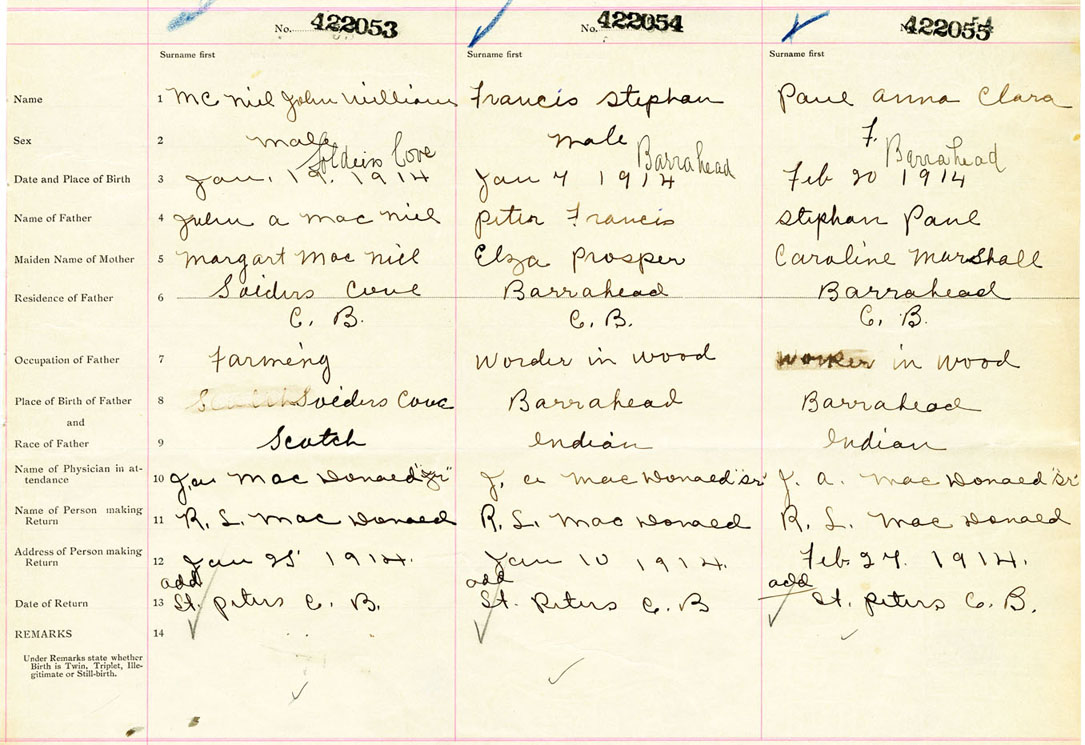 No. 422053 No. 422054 No. 422055
Surname first Surname first Surname first
Name 1 Mc Niel John William Francis Stephan Paul Anna Clara
Sex 2 Male Male F.
Soldeirs Cove Barrahead Barrahead
Date and Place of Birth 3 Jan. 19. 1914 Jan 7 1914 Feb 20 1914
Name of Father 4 John A Mac Niel Peter Francis Stephan Paul
Maiden Name of Mother 5 Margart Mac Niel Elza Prosper Caroline Marshall
Residence of Father 6 Soiders Cove Barrahead Barrahead
C. B. C. B. C. B.
Occupation of Father 7 Farming Worder in wood Worker in wood
Place of Birth of Father 8 Soiders Cove Barrahead Barrahead
and
Race of Father 9 Scotch Indian Indian
Name of Physician in at-
tendance 10 J. A. Mac Donald "Jr" J. A. Mac Donald "Sr" J. A. Mac Donald "Sr"
Name of Person making
Return 11 R. L. Mac Donald R. L. Mac Donald R. L. Mac Donald
Address of Person making
Return 12 Jan 25 1914. Jan 10 1914. Feb. 27. 1914.
add add add
Date of Return 13 St. Peters C. B. St. Peters C. B St. Peters C. B.
REMARKS 14
Under Remarks state whether
Birth is Twin, Triplet, Ille-
gitimate or Still-birth.